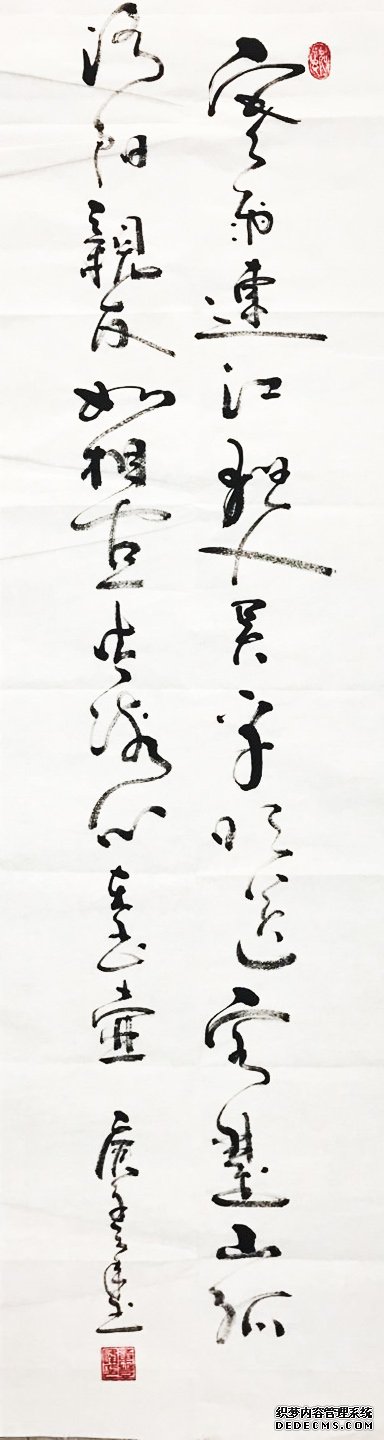 寒雨連江夜入吴平明送客楚山孤
洛阳親友如相问一片冰心在玉壶
织梦内容管理系统
DEDECMS.COM